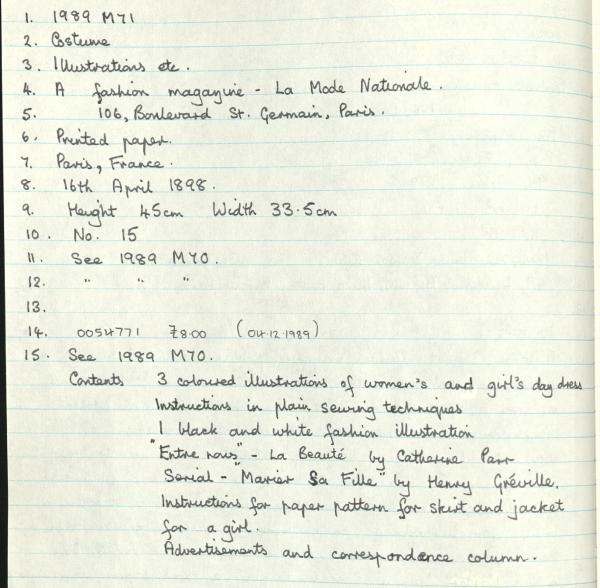 1. 1989 M71
2. Costume
3. Illustrations etc.
4. A fashion magazine - La Mode Nationale.
5. 106, Boulevard St. Germain, Paris.
6. Printed paper.
7. Paris, France.
8. 16th April 1898.
9. Height 45cm Width 33.5cm
10. No. 15
11. See 1989 M70.
12. " " "
13.
14. 0054771 £8.00 (04.12.1989)
15. See 1989 M70.
Contents 3 coloured illustrations of women's and girl's day dress
Instructions in plain sewing techniques
1 black and white fashion illustration
"Entre nous" - La Beauté by Catherine Parr
Serial - "Marier Sa Fille" by Henry Gréville.
Instructions for paper pattern for skirt and jacket
for a girl.
Advertisements and correspondence column.